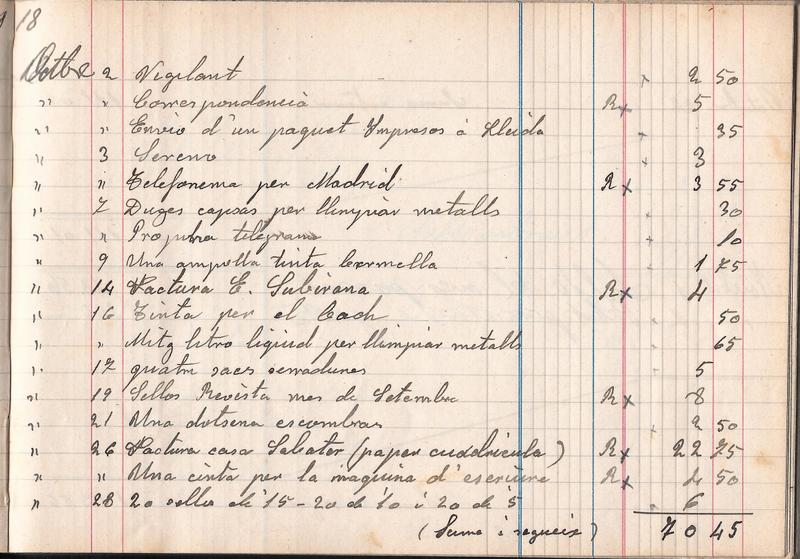 18
Octbre 2 Vigilant x 2 50
" " Correspondencia Rx 5
" " Envio d'un paquet Impresos á Lleida x 35
" 3 Sereno x 3
" " Telefonema per Madrid Rx 3 55
" 7 Duges capsas per llimpiar metalls x 30
" " Propina telegrama x 10
" 9 Una ampolla tinta bermella x 1 75
" 14 Factura E. Subirana Rx 4
" 16 Tinta per el 50
" " Mitg litro liquid per llimpiar metalls 65
" 17 quatre sacs serradures 5
" 19 Sellos Revista mes de Setembre Rx 8
" 21 Una dotsena escombras x 2 50
" 26 Factura casa Sabater (paper cuadricula) Rx 22 75
" " Una cinta per la maquina d'escriure Rx 4 50
" 28 20 sellos de 15 - 20 de 10 i 20 de 5 6
(Suma i segueix) 70 45